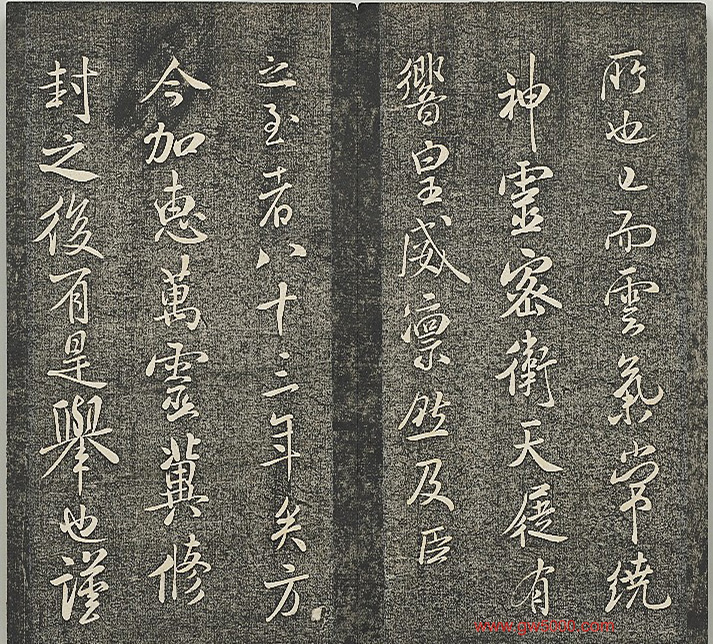 所也已而雲氣常繞
神靈密衛天從有
響皇威凛然及臣
之至者八十三年矣方
今加惠萬靈冀修
封之後有是舉也謹